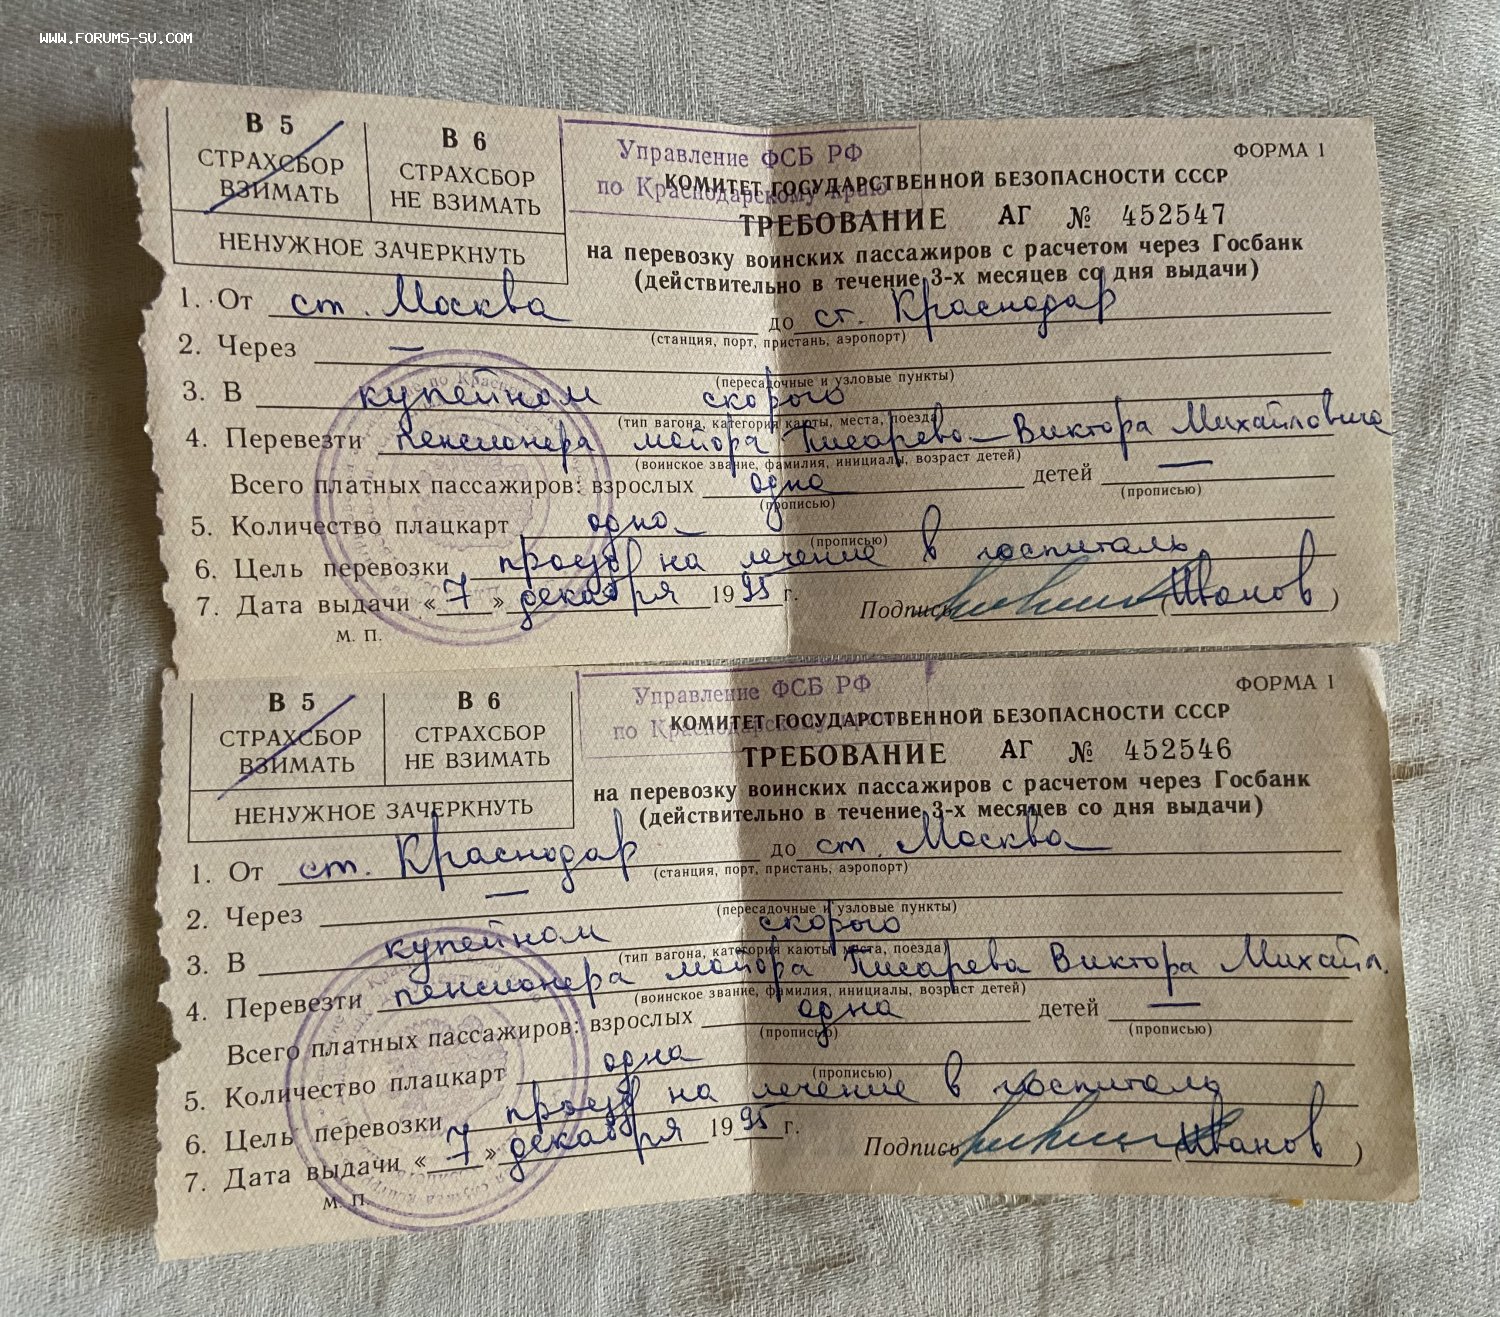 WWW.FORUMS-SU.COM
В 5
СТРАХСБОР
ВЗИМАТЬ
В 6
СТРАХСБОР
НЕ ВЗИМАТЬ
НЕНУЖНОЕ ЗАЧЕРКНУТЬ
Управление ФСБ РФ
по Краснодарскому краю
ФОРМА 1
КОМИТЕТ ГОСУДАРСТВЕННОЙ БЕЗОПАСНОСТИ СССР
ТРЕБОВАНИЕ АГ № 452547
на перевозку воинских пассажиров с расчетом через Госбанк
(действительно в течение 3-х месяцев со дня выдачи)
1. От ст. Москва до ст. Краснодар
(станция, порт, пристань, аэропорт)
2. Через —
(пересадочные и узловые пункты)
3. В купейном скорого
(тип вагона, категория каюты, места, поезда)
4. Перевезти пенсионера майора Писарева Виктора Михайловича
(воинское звание, фамилия, инициалы, возраст детей)
Всего платных пассажиров: взрослых одна детей —
(прописью) (прописью)
5. Количество плацкарт одна
(прописью)
6. Цель перевозки проезд на лечение в госпиталь
7. Дата выдачи «7» декабря 1995 г. Подпись (Иванов)
М. П.
В 5
СТРАХСБОР
ВЗИМАТЬ
В 6
СТРАХСБОР
НЕ ВЗИМАТЬ
НЕНУЖНОЕ ЗАЧЕРКНУТЬ
Управление ФСБ РФ
по Краснодарскому краю
ФОРМА 1
КОМИТЕТ ГОСУДАРСТВЕННОЙ БЕЗОПАСНОСТИ СССР
ТРЕБОВАНИЕ АГ № 452546
на перевозку воинских пассажиров с расчетом через Госбанк
(действительно в течение 3-х месяцев со дня выдачи)
1. От ст. Краснодар до ст. Москва
(станция, порт, пристань, аэропорт)
2. Через —
(пересадочные и узловые пункты)
3. В купейном скорого
(тип вагона, категория каюты, места, поезда)
4. Перевезти пенсионера майора Писарева Виктора Михайл.
(воинское звание, фамилия, инициалы, возраст детей)
Всего платных пассажиров: взрослых одна детей —
(прописью) (прописью)
5. Количество плацкарт одна
(прописью)
6. Цель перевозки проезд на лечение в госпиталь
7. Дата выдачи «7» декабря 1995 г. Подпись (Иванов)
М. П.